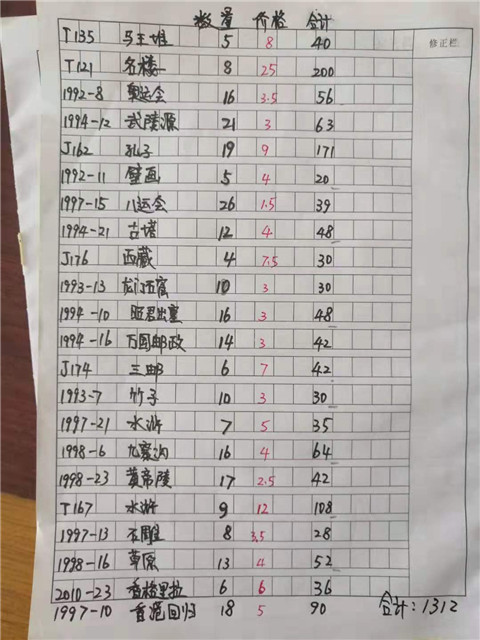 数量 价格 合计
修正栏
T135 马王堆 5 8 40
T121 名楼 8 25 200
1992-8 奥运会 16 3.5 56
1994-12 武陵源 21 3 63
J162 孔子 19 9 171
1992-11 壁画 5 4 20
1997-15 八运会 26 1.5 39
1994-21 古塔 12 4 48
J176 西藏 4 7.5 30
1993-13 龙门石窟 10 3 30
1994-10 昭君出塞 16 3 48
1994-16 万国邮政 14 3 42
J174 三邮 6 7 42
1993-7 竹子 10 3 30
1997-21 水浒 7 5 35
1998-6 九寨沟 16 4 64
1998-23 黄帝陵 17 2.5 42
T167 水浒 9 12 108
1997-13 石雕 8 3.5 28
1998-16 草原 13 4 52
2010-23 香格里拉 6 6 36
1997-10 香港回归 18 5 90 合计:1312